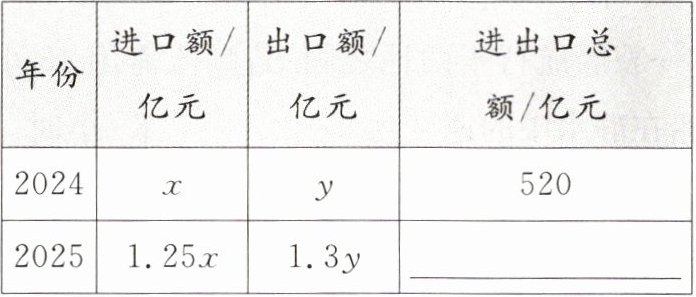 年份 进口额/亿元 出口额/亿元 进出口总额/亿元
2024 x y 520
2025 1.25x 1.3y ______